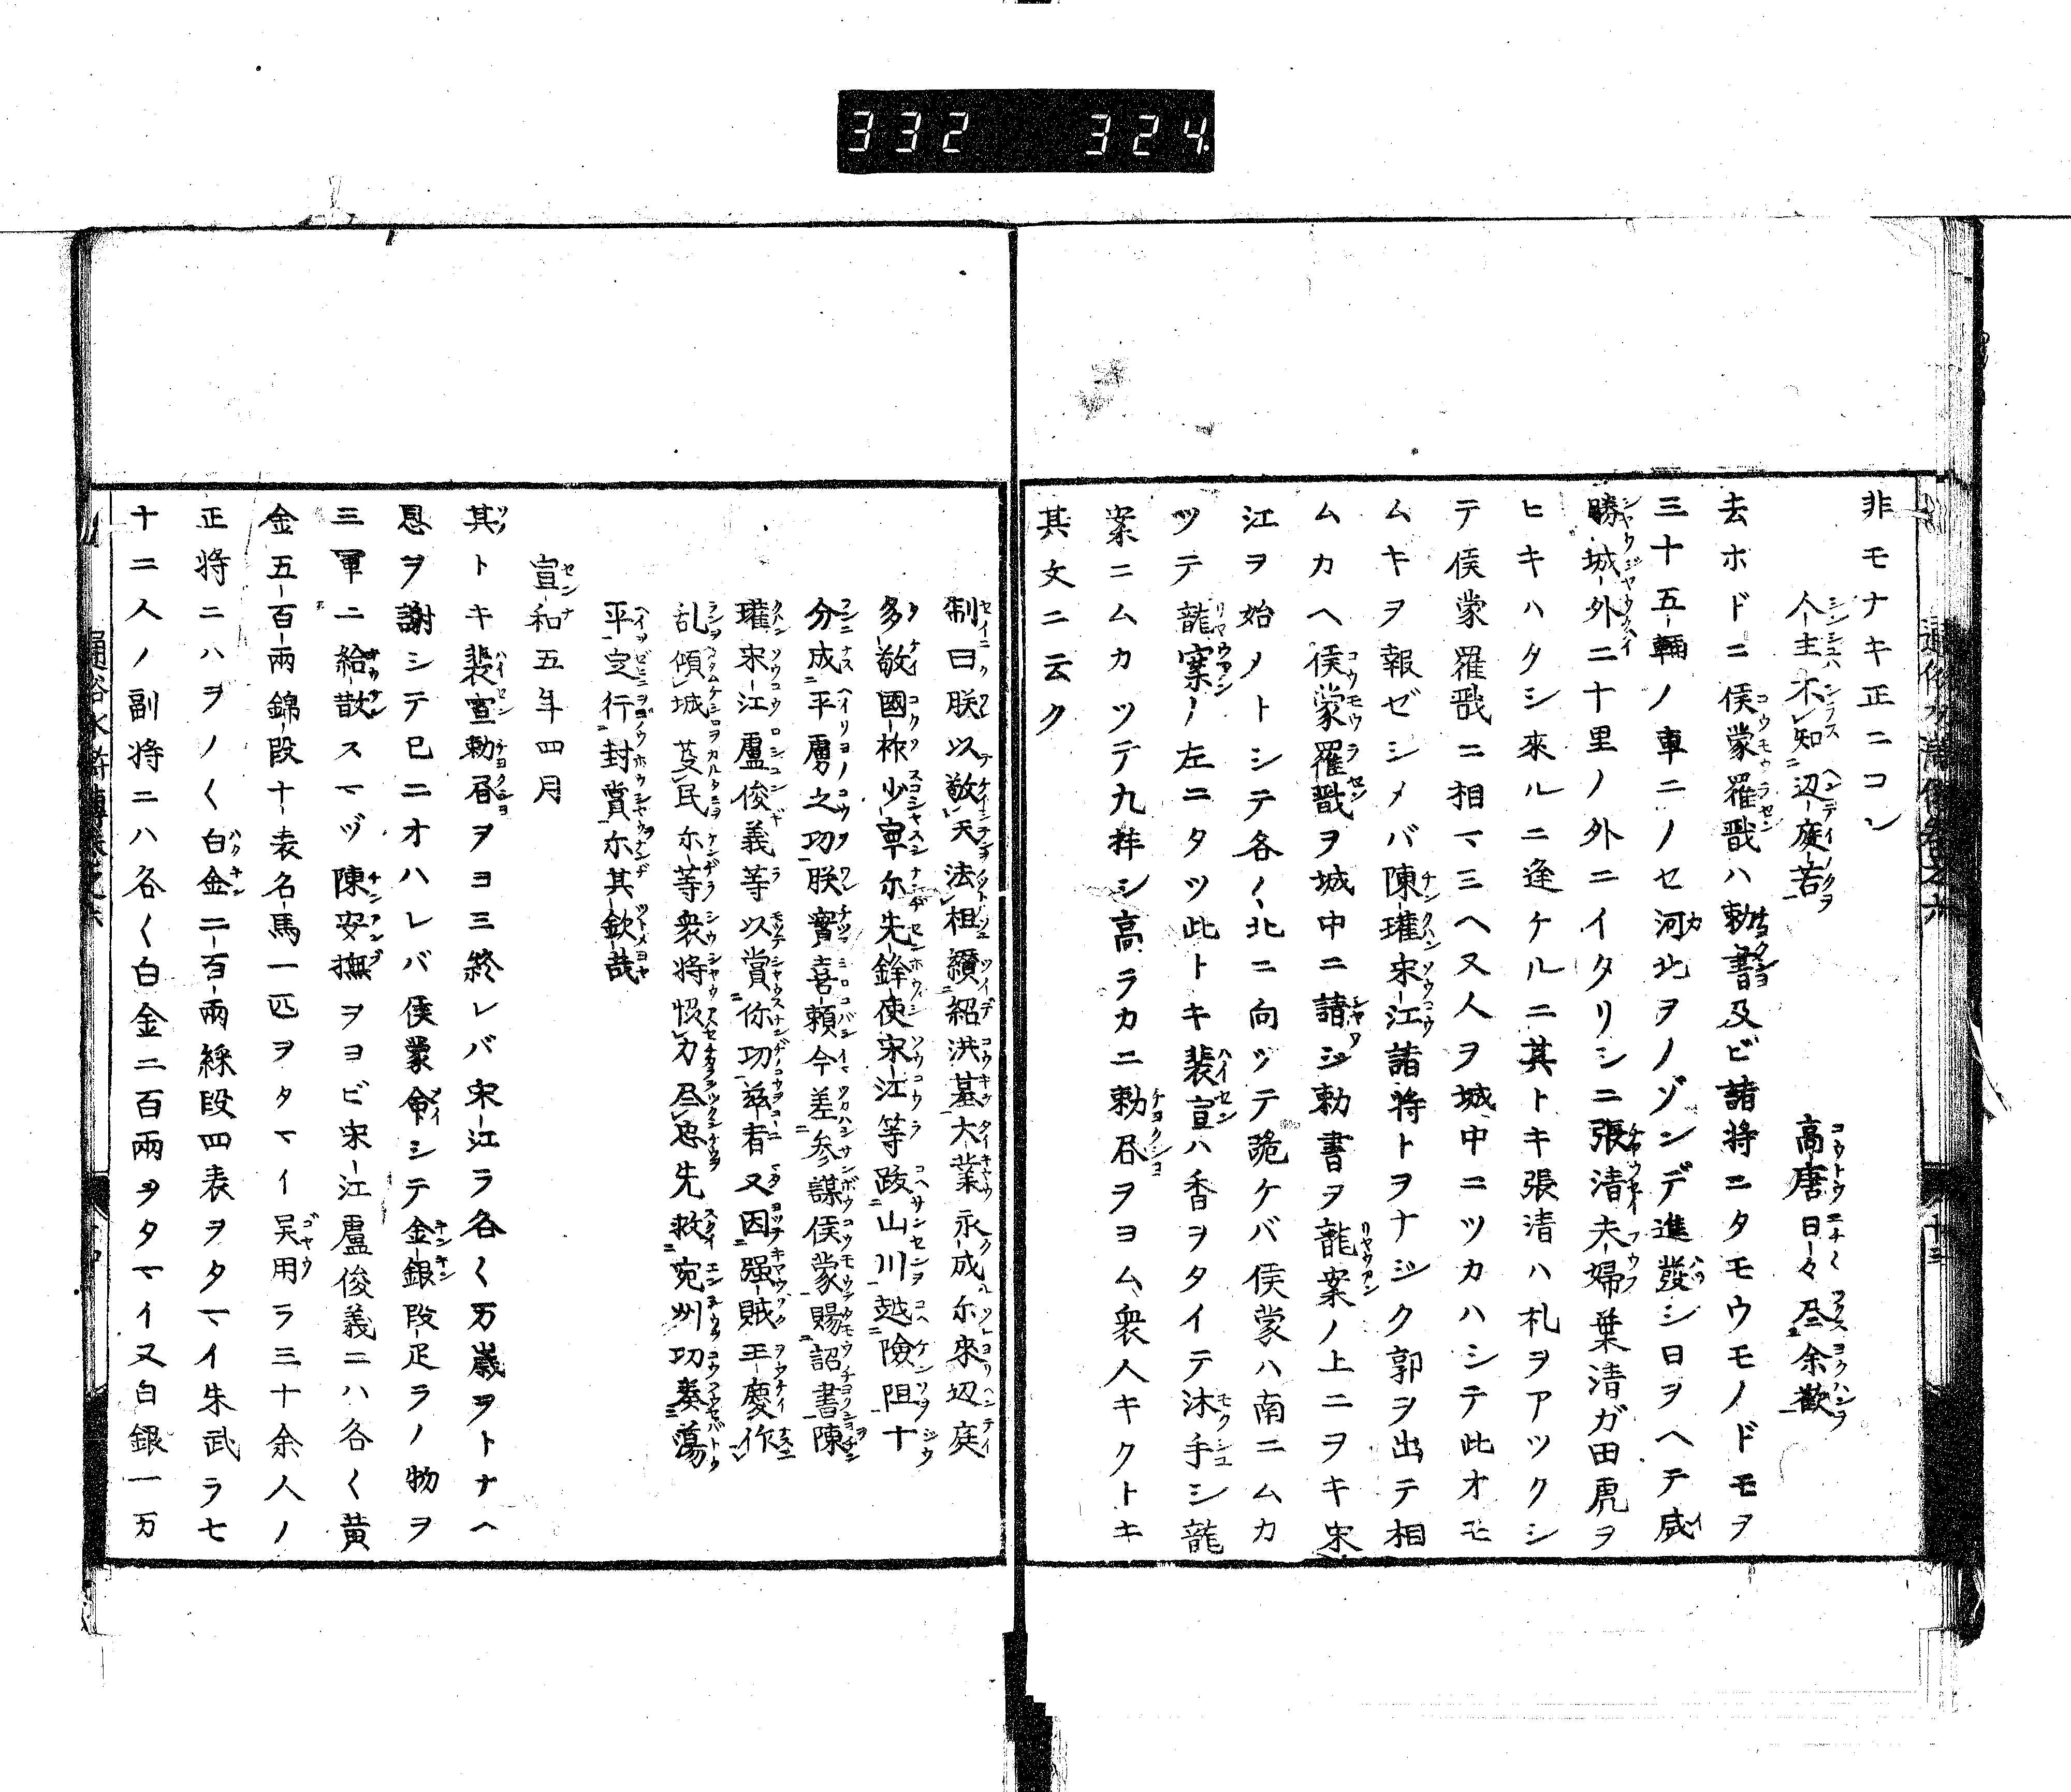 332 324
非モナキ正ニコン
人主不知辺庭苦 高唐日々尽余歓
去ホドニ侯蒙羅戩ハ勅書及ビ諸将ニタモウモノドモヲ
三十五輛ノ車ニノセ河北ヲノゾンデ進發シ日ヲヘテ威
勝城外二十里ノ外ニイタリシニ張清夫婦葉清ガ田虎ヲ
ヒキハタシ來ルニ逢ケルニ其トキ張清ハ札ヲアツクシ
テ侯蒙羅戩ニ相マミヘ又人ヲ城中ニツカハシテ此オモ
ムキヲ報ゼシメバ陳瓘宋江諸將トヲナジク郭ヲ出テ相
ムカヘ侯蒙羅戩ヲ城中ニ請ジ勅書ヲ龍案ノ上ニヲキ宋
江ヲ始メトシテ各〱北ニ向ツテ跪ケバ侯蒙ハ南ニムカ
ツテ龍案ノ左ニタツ此トキ裴宣ハ香ヲタイテ沐手シ龍
案ニムカツテ九拝シ高ラカニ勅书ヲヨム衆人キクトキ
其文ニ云ク
制曰朕以敬天法祖纘紹洪基大業永成尓來辺庭
多敬國祚少寧尓先鋒使宋江等跋山川越險阻十
分成平虜之功朕實喜頼今差参謀侯蒙賜詔書陳
瓘宋江盧俊義等以賞你功茲者又因强賊王慶作
乱傾城芟民尓等衆将恊力尽忠先救宛州功奏蕩
平定行封賞尓其欽哉
宣和五年四月
其トキ裴宣勅书ヲヨミ終レバ宋江ラ各〱万歳ヲトナヘ
恩ヲ謝シテ已ニオハレバ侯蒙命シテ金銀段疋ラノ物ヲ
三軍ニ給散スマヅ陳安撫ヲヨビ宋江盧俊義ニハ各〱黄
金五百兩錦段十表名馬一匹ヲタマイ吴用ラ三十余人ノ
正将ニハヲノ〱白金二百兩綵段四表ヲタマイ朱武ラ七
十二人ノ副将ニハ各〱白金二百兩ヲタマイ又白銀一万